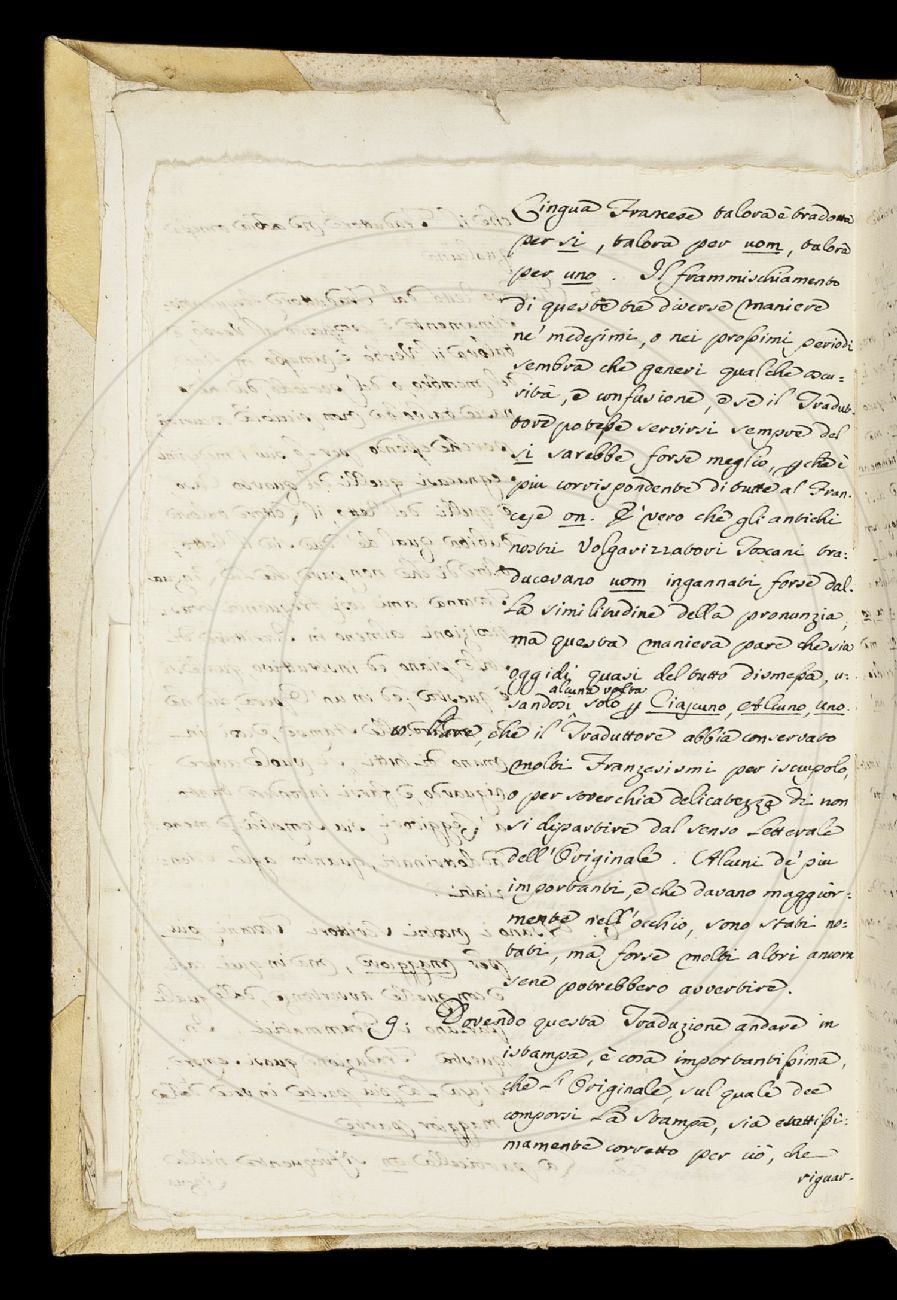 Lingua Francese talora è tradotta
per si, talora per uom, talora
per uno. Il frammischiamento
di queste tre diverse maniere
ne' medesimi, o nei prossimi periodi
sembra che generi qualche oscu-
rità, e confusione, e se il Tradut-
tore potesse servirsi sempre del
si sarebbe forse meglio, pchè è
più corrispondente di tutte al Fran-
cese on. E' vero che gli antichi
nostri Volgarizzatori Toscani tra-
ducevano uom ingannati forse dal-
la similitudine della pronunzia,
ma questa maniera pare che sia
oggidì quasi del tutto dismessa, u-
alcuna volta
sandosi solo p Ciascuno, Alcuno, Uno.
che il Traduttore abbia conservato
molti Franzesismi per iscrupolo,
o per soverchia delicatezza di non
si dipartire dal senso letterale
dell'Originale. Alcuni de' più
importanti, e che davano maggior-
mente nell'occhio, sono stati no-
tati, ma forse molti altri ancora
sene potrebbero avvertire.
9. Dovendo questa Traduzione andare in
istampa, è cosa importantissima,
che l'Originale, sul quale dee
comporsi la Stampa, sia esattissi-
mamente corretto per ciò, che
riguar-